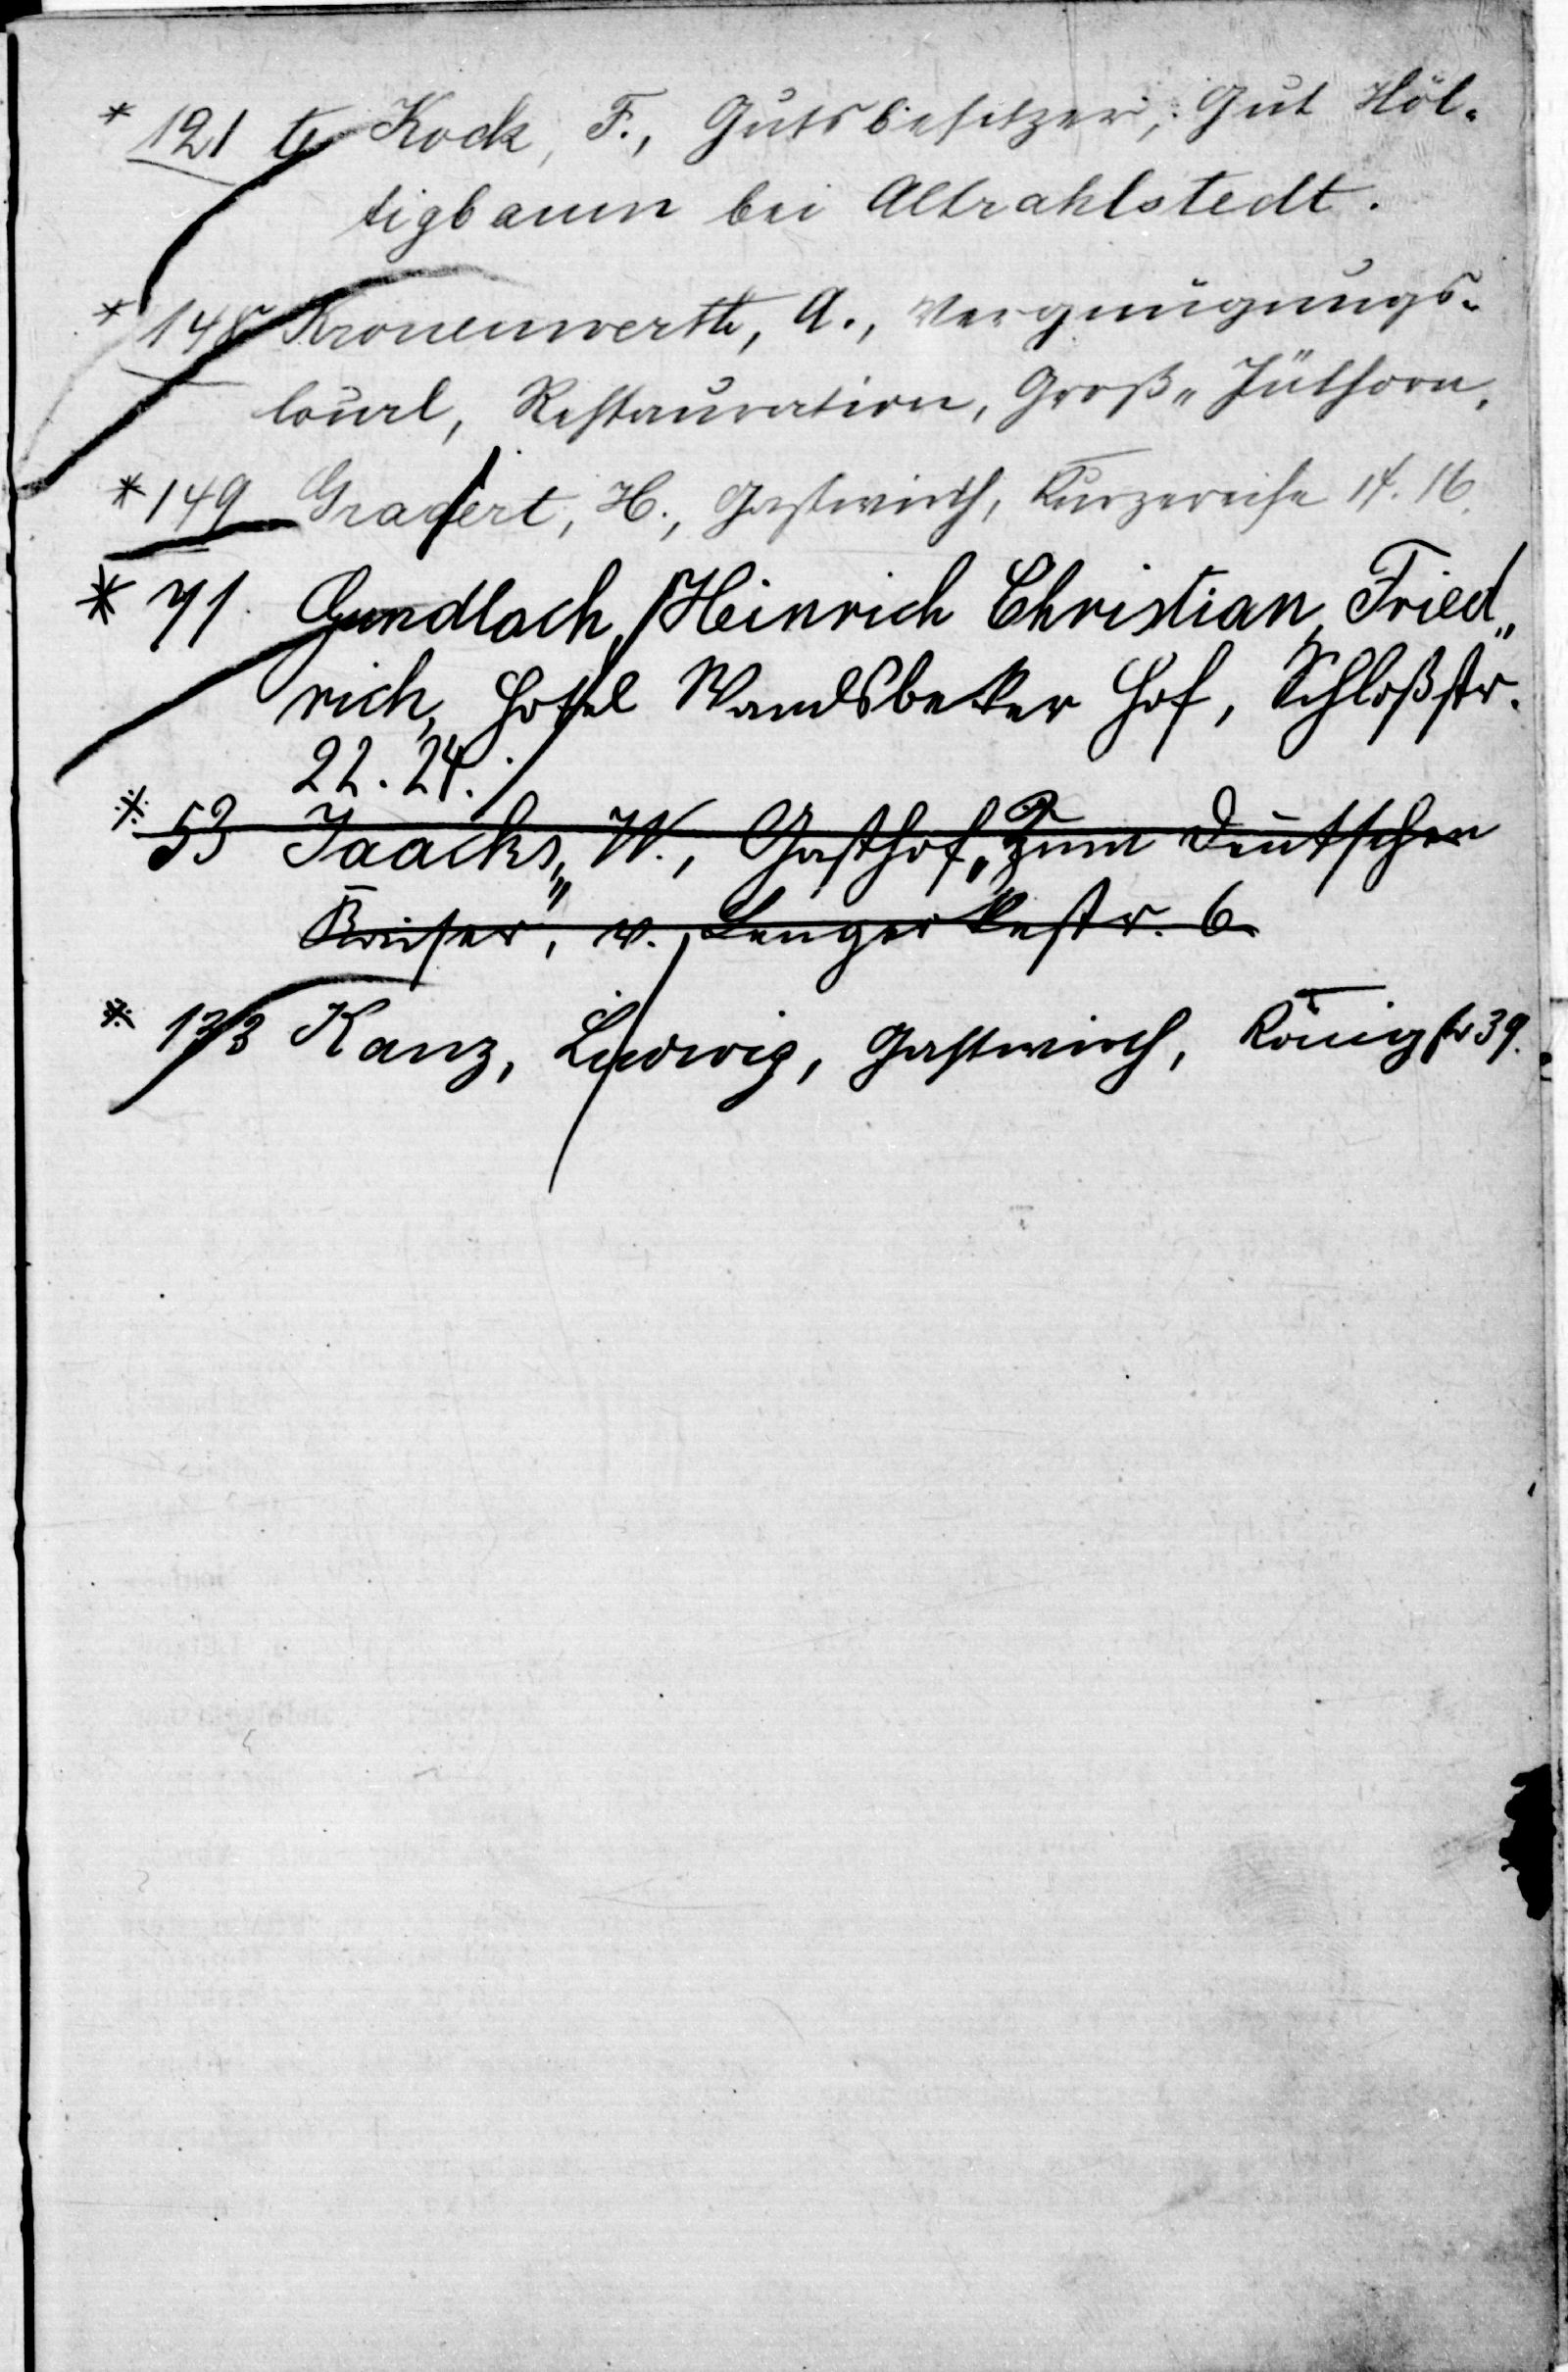 * 121 te Kock, F., Gutsbesitzer, Gut Höl-
tigbaum bei Altrahlstedt.
* 148 Kronenwerth, A., Vergnügungs-
local, Restauration, Groß„ Jüthorn,
* 149 Gradert, H., Gastwirth, Kurzereihe 14. 16.
* 71. Gundlach, Heinrich Christian Fried„
rich, Hotel Wandsbeker Hof, Schloßstr.
22. 24.
* 53 Jaacks, W., Gasthof „Zum Deutschen
Kaiser", v. Lengerkestr. 6.
* 133 Kanz, Ludwig, Gastwirth, Königstr 39.